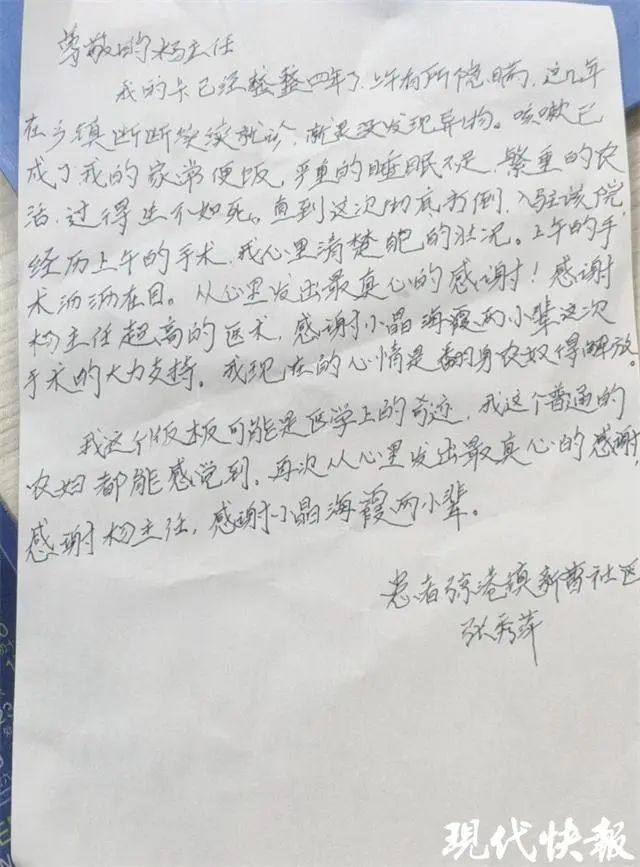 尊敬的杨主任
我的卡已经整整四年了,上午有所隐瞒,这几年
在乡镇断断续续就诊,就是没发现异物。咳嗽已
成了我的家常便饭,严重的睡眠不足,繁重的农
活,过得生不如死。直到这次彻底打倒,入驻该院,
经历上午的手术,我心里清楚的状况。上午的手
术历历在目。从心里发出最真心的感谢!感谢
杨主任超高的医术,感谢小晶海霞两小辈这次
手术的大力支持。我现在的心情是翻身农奴得解放。
我这个板可能是医学上的奇迹,我这个普通的
农妇都能感觉到。再次从心里发出最真心的感谢,
感谢杨主任,感谢小晶海霞两小辈。
患者徐港镇新曹社区
张秀萍
现代快报